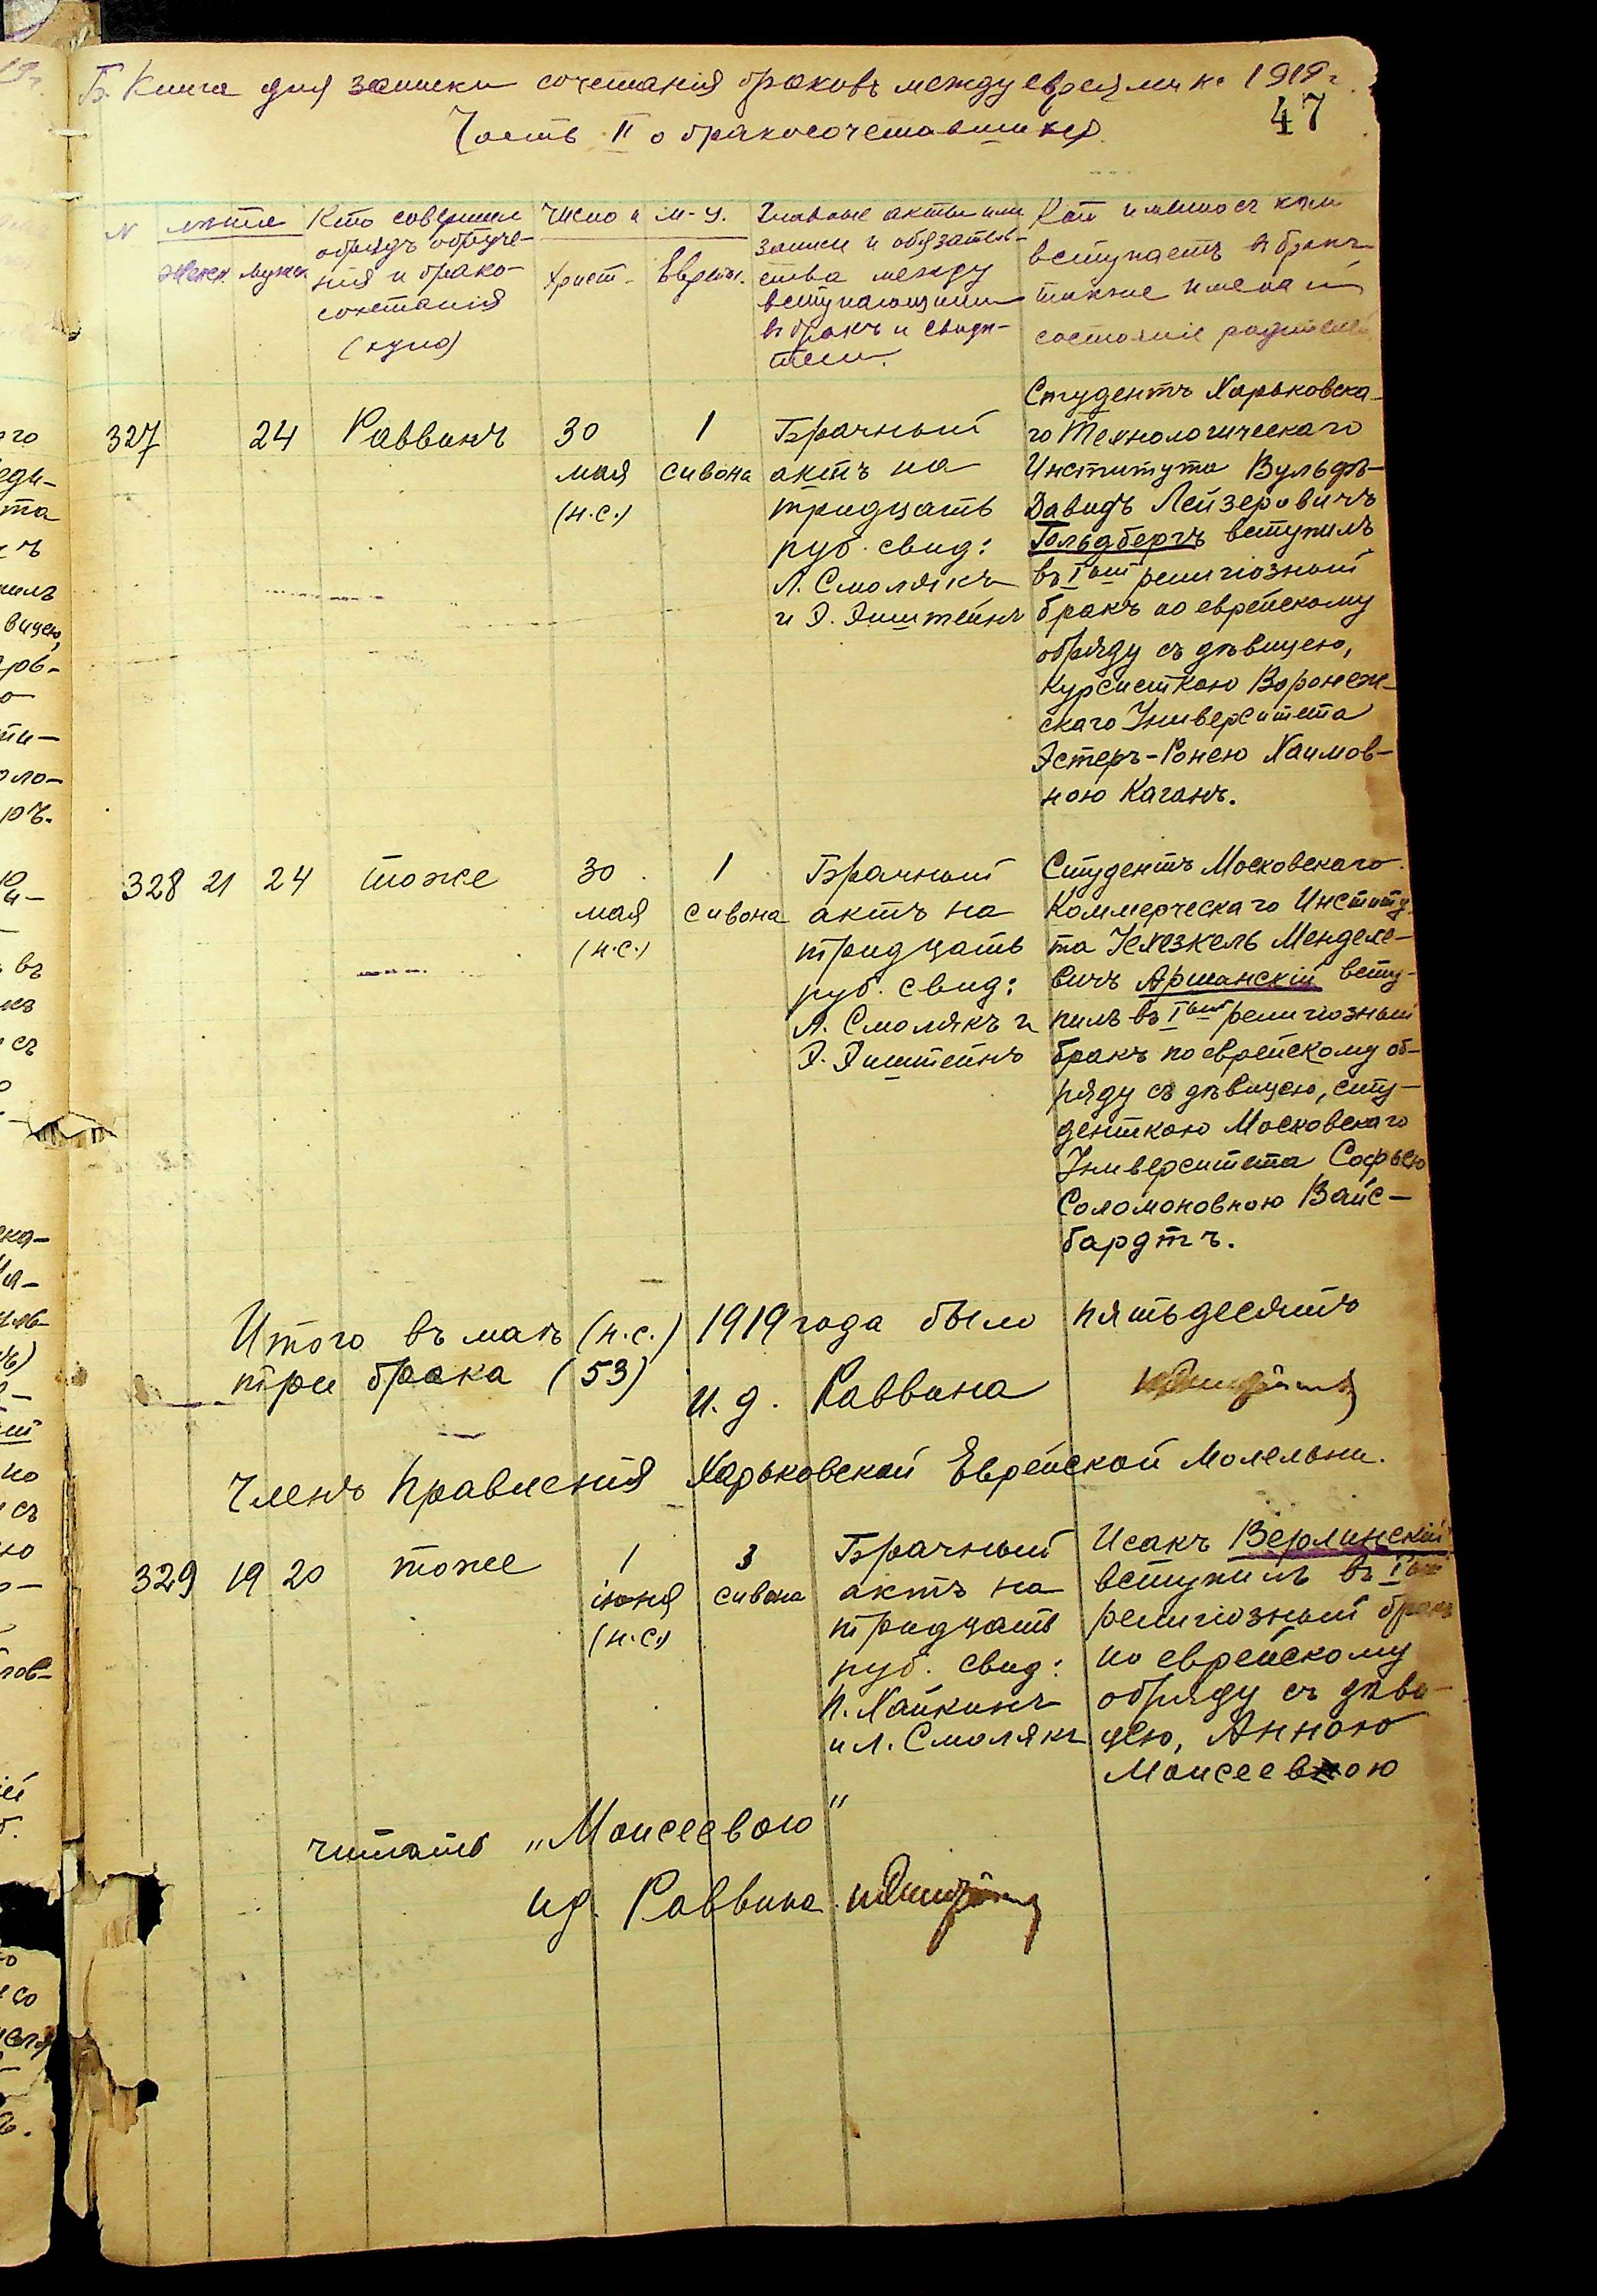 Б. Книга для записки сочетанія браковъ между евреями на 1919 г.
47
Часть II о бракосочетавшихся
N
лѣта
Женск. Мужск.
Кто совершил
обрядъ обруче-
нія и брако-
сочетанія
Число и м-ц.
Христ.
Еврейск.
Главные акты или
записи и обязатель-
ства между
вступающими
въ бракъ и свидѣ-
тели.
Кто именно съ кѣм
вступаетъ въ бракъ
также имена и
состояніе родителей
327
24
Раввинъ
30
мая
(н.с.)
1
сивона
Брачный
актъ на
тридцать
руб. свид:
Л. Смолякъ
и Э. Эпштейнъ
Студентъ Харьковска-
го Технологическаго
Института Вульфъ-
Давидъ Лейзеровичъ
Гольдбергъ вступилъ
въ Iый религіозный
бракъ по еврейскому
обряду съ дѣвицею,
курсисткою Воронеж-
скаго Университета
Эстеръ-Ронею Хаимов-
ною Каганъ.
328
21
24
тоже
30
мая
(н.с.)
1
сивона
Брачный
актъ на
тридцать
руб. свид:
Л. Смолякъ и
Э. Эпштейнъ
Студентъ Московскаго
Коммерческаго Институ-
та Хезкель Менделе-
вичъ Аршанскій всту-
пилъ въ Iый религіозный
бракъ по еврейскому об-
ряду съ дѣвицею, сту-
денткою Московскаго
Университета Софьею
Соломоновною Вайс-
бардтъ.
Итого въ маѣ (н.с.) 1919 года было пятьдесятъ
три брака (53)
И. д. Раввина
Членъ Правленія Харьковской Еврейской Молельни.
329
19
20
тоже
1
іюня
(н.с.)
3
сивона
Брачный
актъ на
тридцать
руб. свид:
П. Хайкинъ
и Л. Смолякъ
Исакъ Верлинскій
вступилъ въ Iый
религіозный бракъ
по еврейскому
обряду съ дѣви-
цею, Анною
Моисеевною
читать „Моисеевою"
ид. Раввина